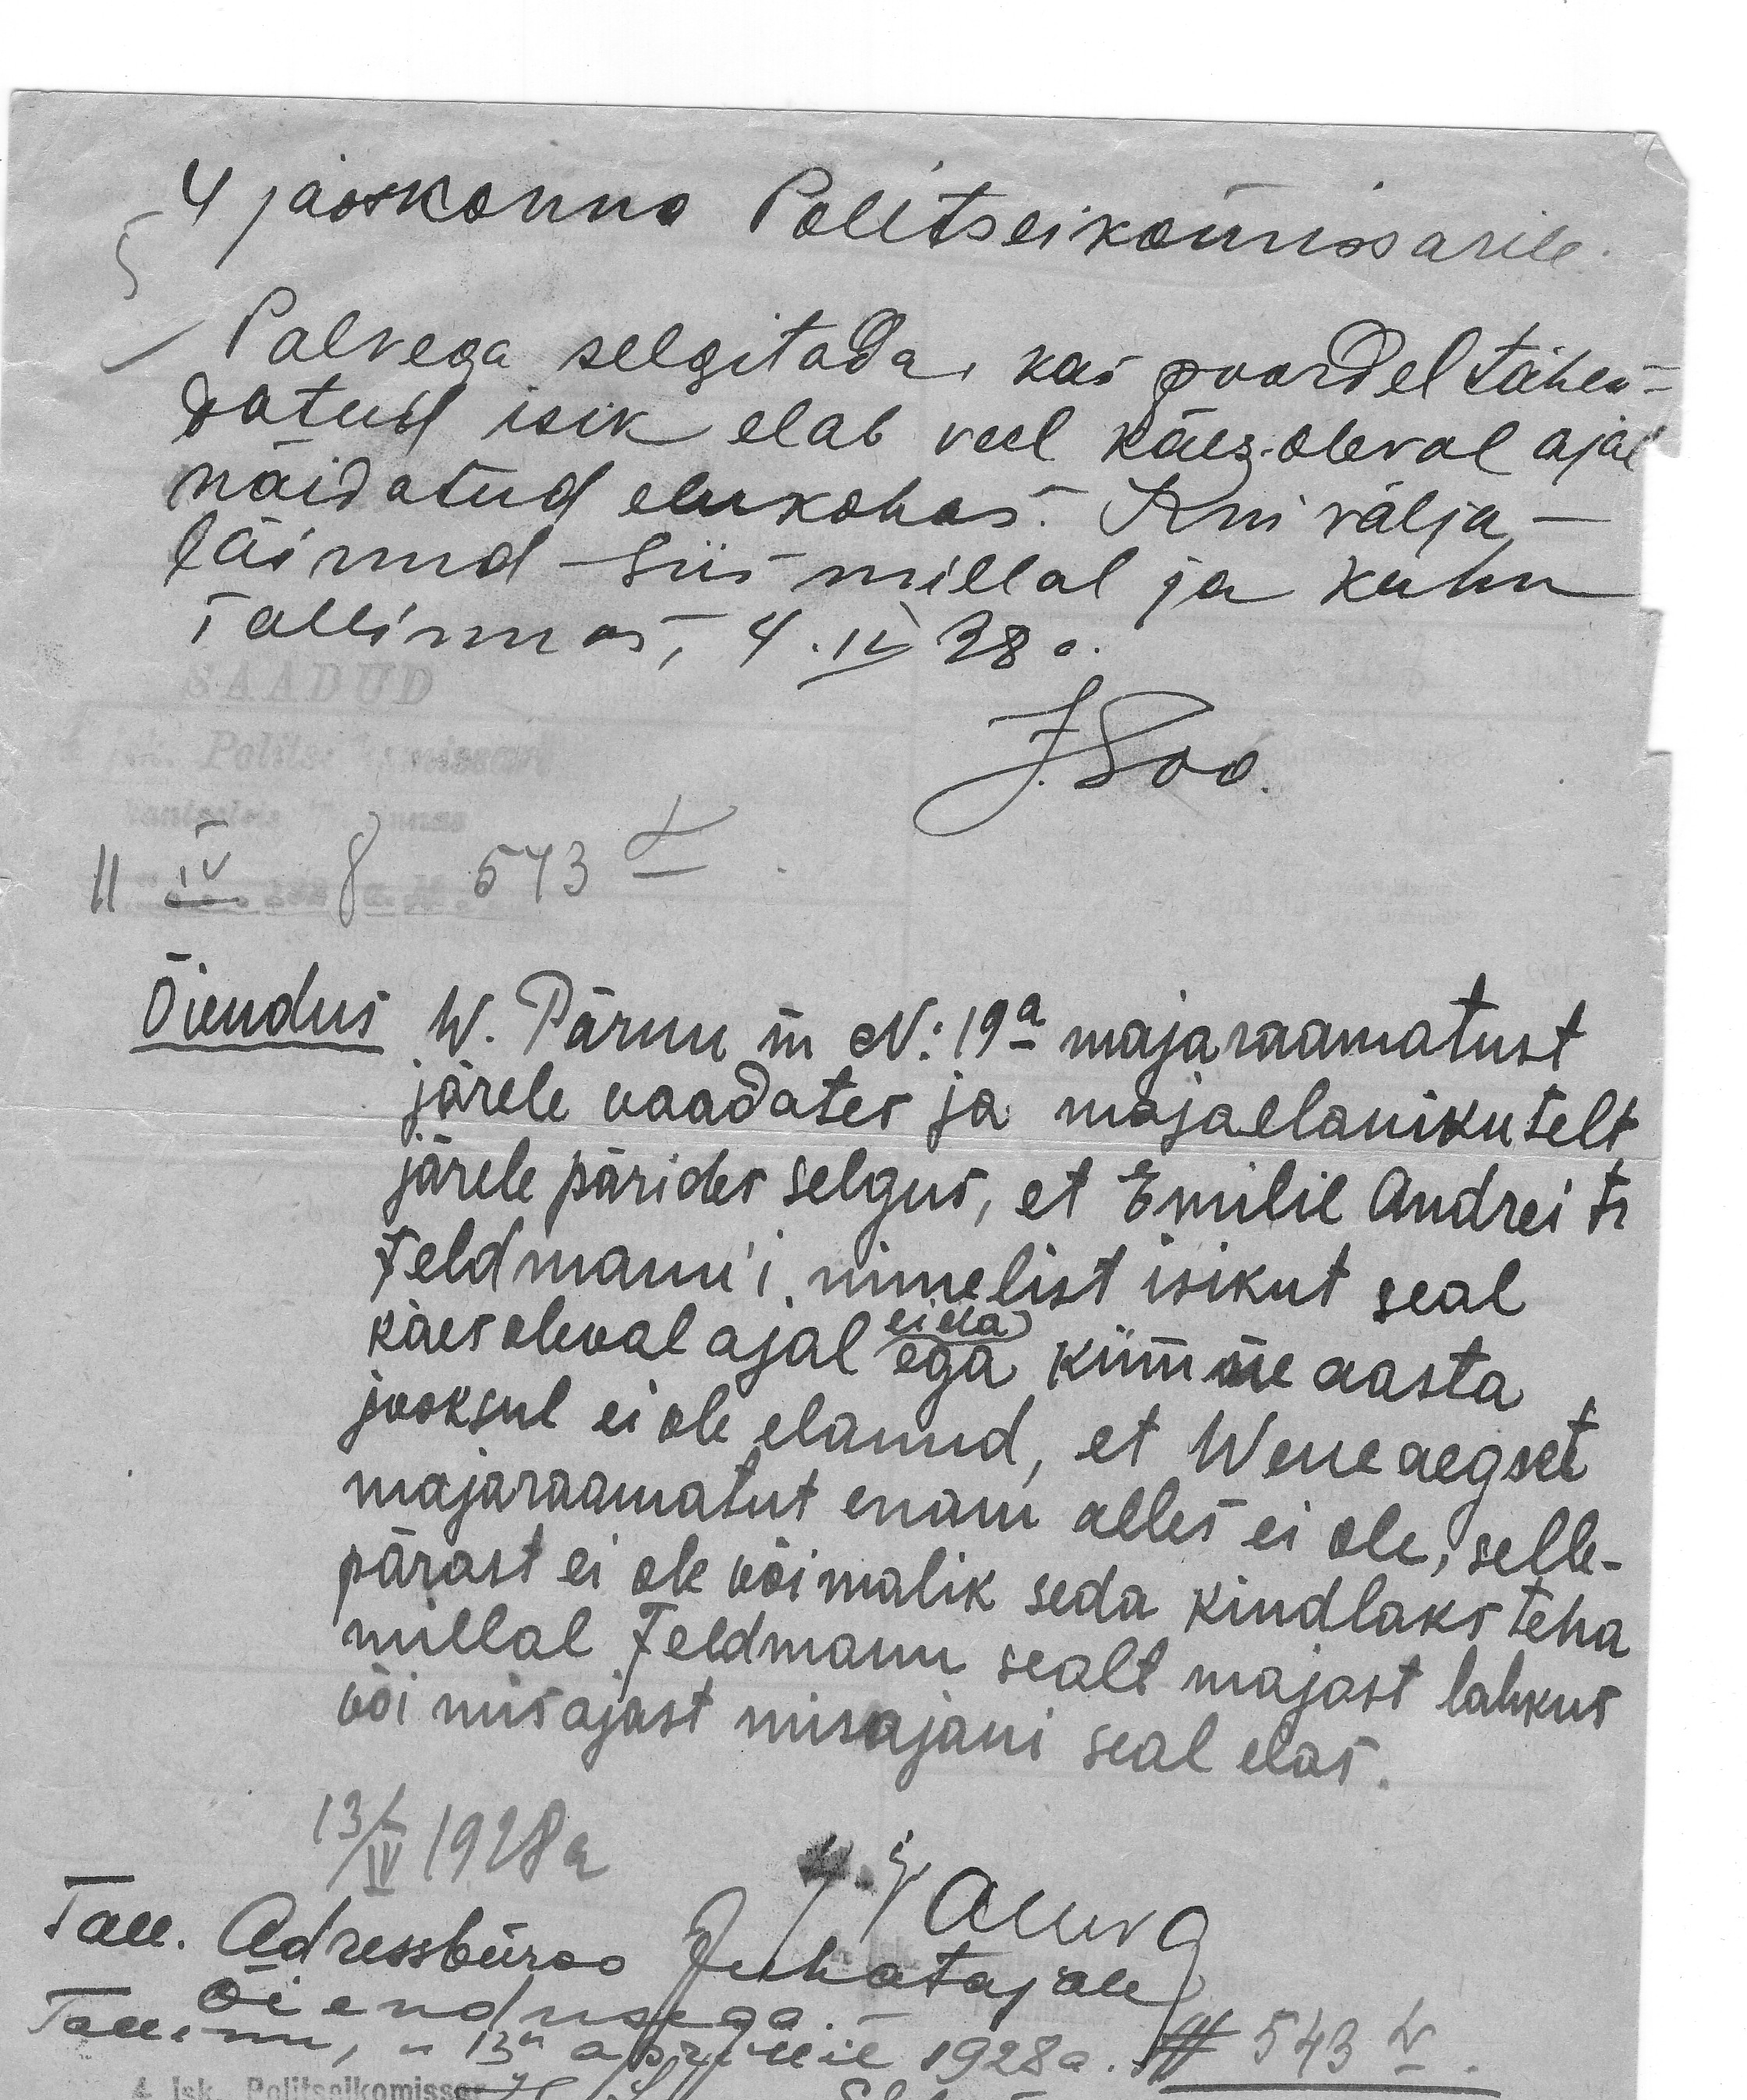 4 jaoskonna Politseikomissarile.
Palvega selgitada, kas poordel tähen-
datud isik elab veel käes-oleval ajal
näidatud elukohas. Kui välja
läinud – siis millal ja kuhu
Tallinnas, 4. IV 28 a.
SAADUD
J. Soo.
11 IV 8 543
Õiendus W. Pärnu m N: 19a majaraamatust
järele vaadates ja majaelanikutelt
järele pärides selgus, et Emilie Andrei tr
Feldmann'i nimelist isikut seal
käesoleval ajal ei ela
ega kümne aasta
jooksul ei ole elanud, et Wene aegset
majaraamatut enam alles ei ole, selle-
pärast ei ole võimalik seda kindlaks teha
millal Feldmann sealt majast lahkus
või mis ajast mis ajani seal elas.
13/IV 1928 a
Tall. Adressbüroo Juhatajale
Õiendusega.
Tallinn, "13" aprillil 1928 a. 543
4 jsk. Politseikomissar